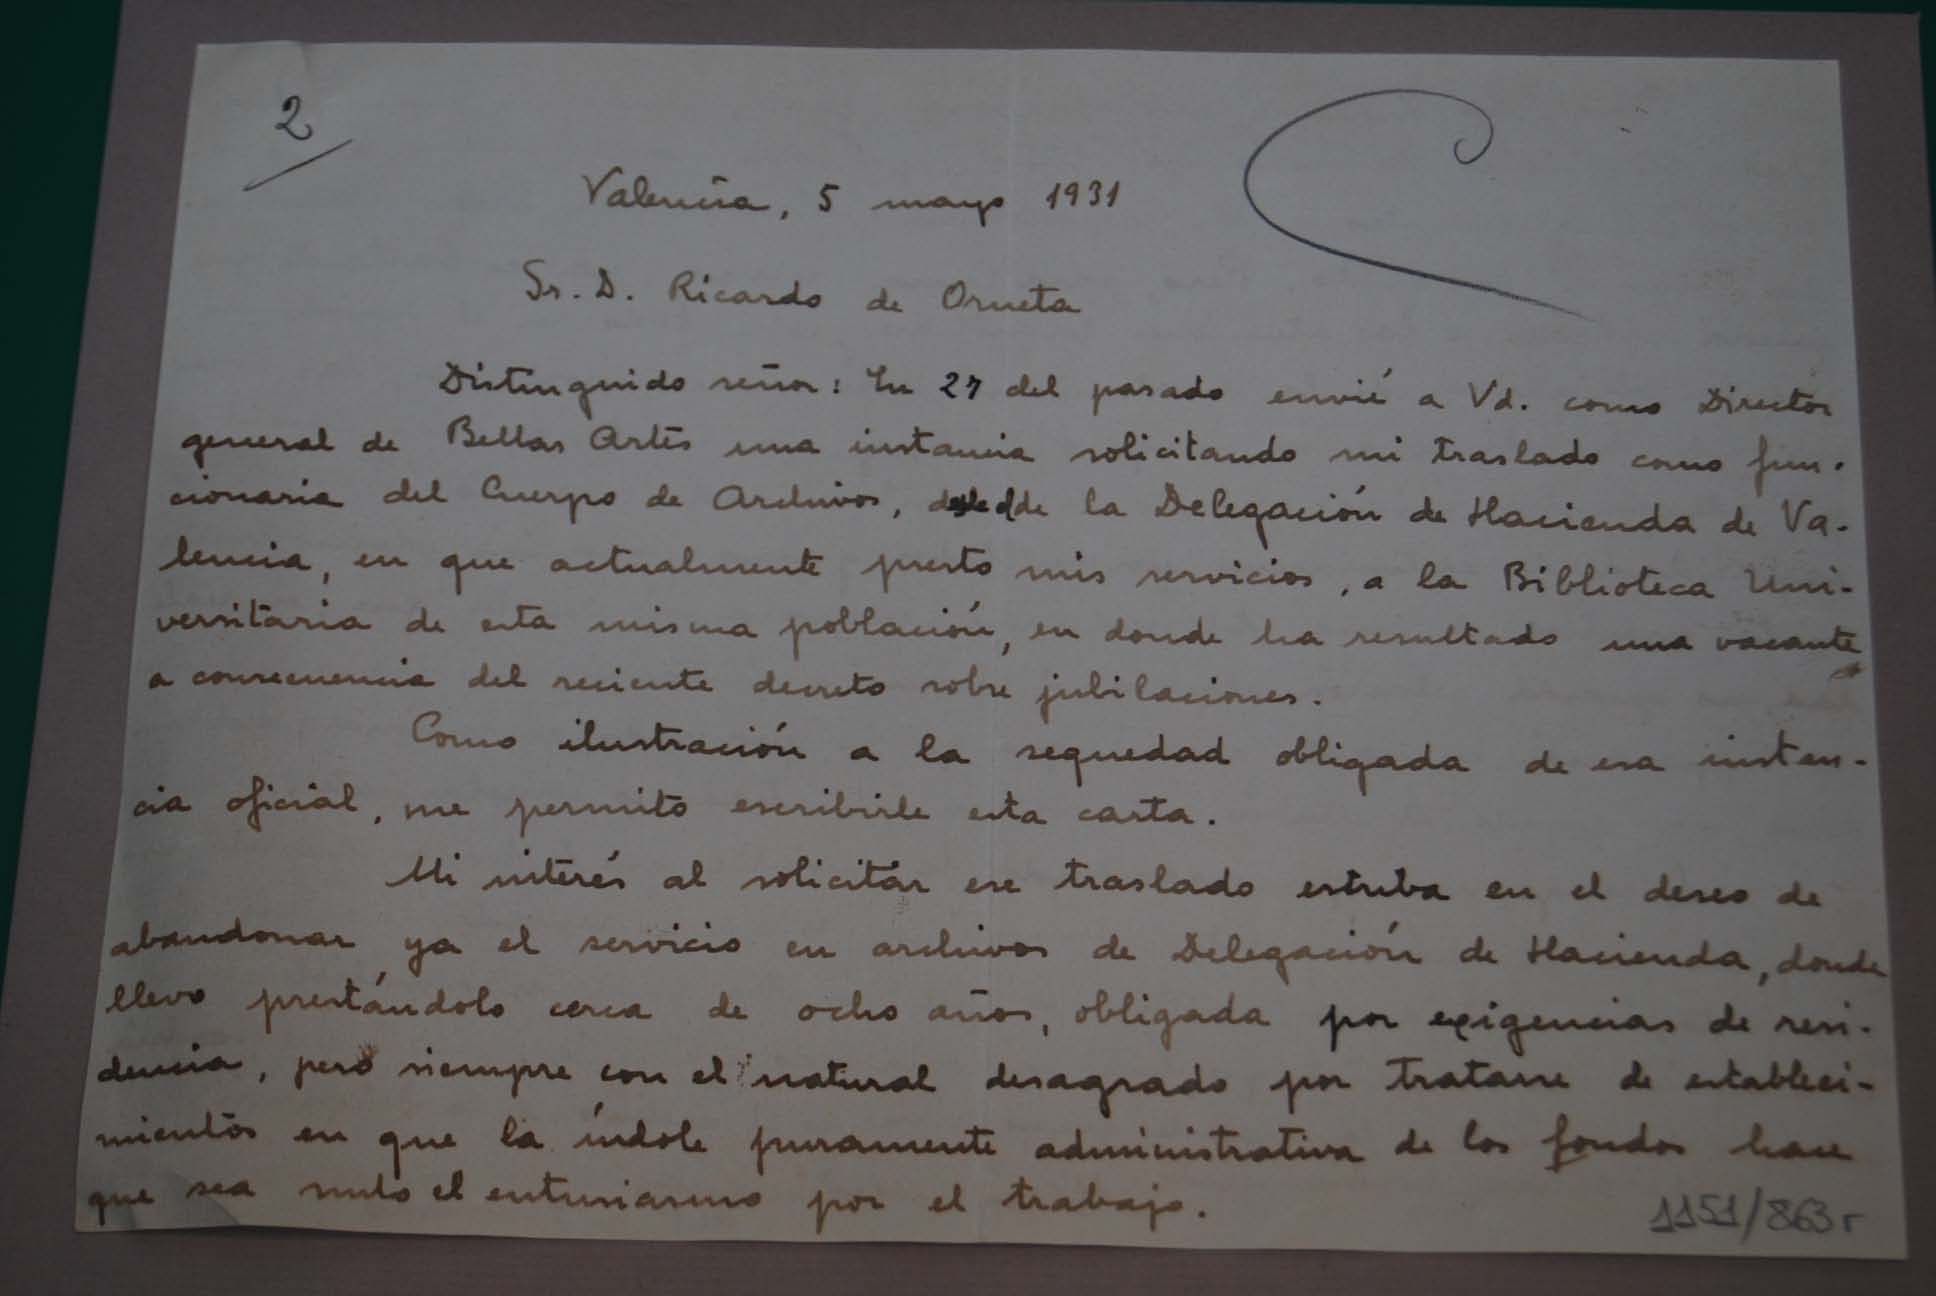 2
Valencia, 5 mayo 1931
Sr. D. Ricardo de Orueta
Distinguido señor: En 27 del pasado envié a Vd. como Director
general de Bellas Artes una instancia solicitando mi traslado como fun-
cionaria del Cuerpo de Archivos, desde la Delegación de Hacienda de Va-
lencia, en que actualmente presto mis servicios, a la Biblioteca Uni-
versitaria de esta misma población, en donde ha resultado una vacante
a consecuencia del reciente decreto sobre jubilaciones.
Como ilustración a la sequedad obligada de esa instan-
cia oficial, me permito escribirle esta carta.
Mi interés al solicitar ese traslado estriba en el deseo de
abandonar ya el servicio en archivos de Delegación de Hacienda, donde
llevo prestándolo cerca de ocho años, obligada por exigencias de resi-
dencia, pero siempre con el natural desagrado por tratarse de estableci-
mientos en que la índole puramente administrativa de los fondos hace
que sea nulo el entusiasmo por el trabajo.
1151/863r